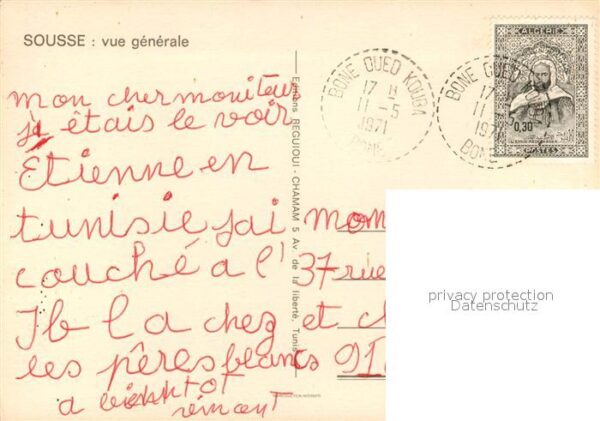 SOUSSE : vue générale
mon cher moniteur
j'étais le voir
Etienne en
tunisie jai
couché a l'
Ib la chez
les pères blancs
a bientot
vincent
Editions REGUIOUI - CHAMAM 5 Av. de la liberté, Tunis
BONE OUED KOUBA
17 H
11 - 5
1971
BONE
BONE OUED
17
11
1971
BONE
ALGERIE
0,30
POSTES
mon
37 rue
et ch
91
privacy protection
Datenschutz